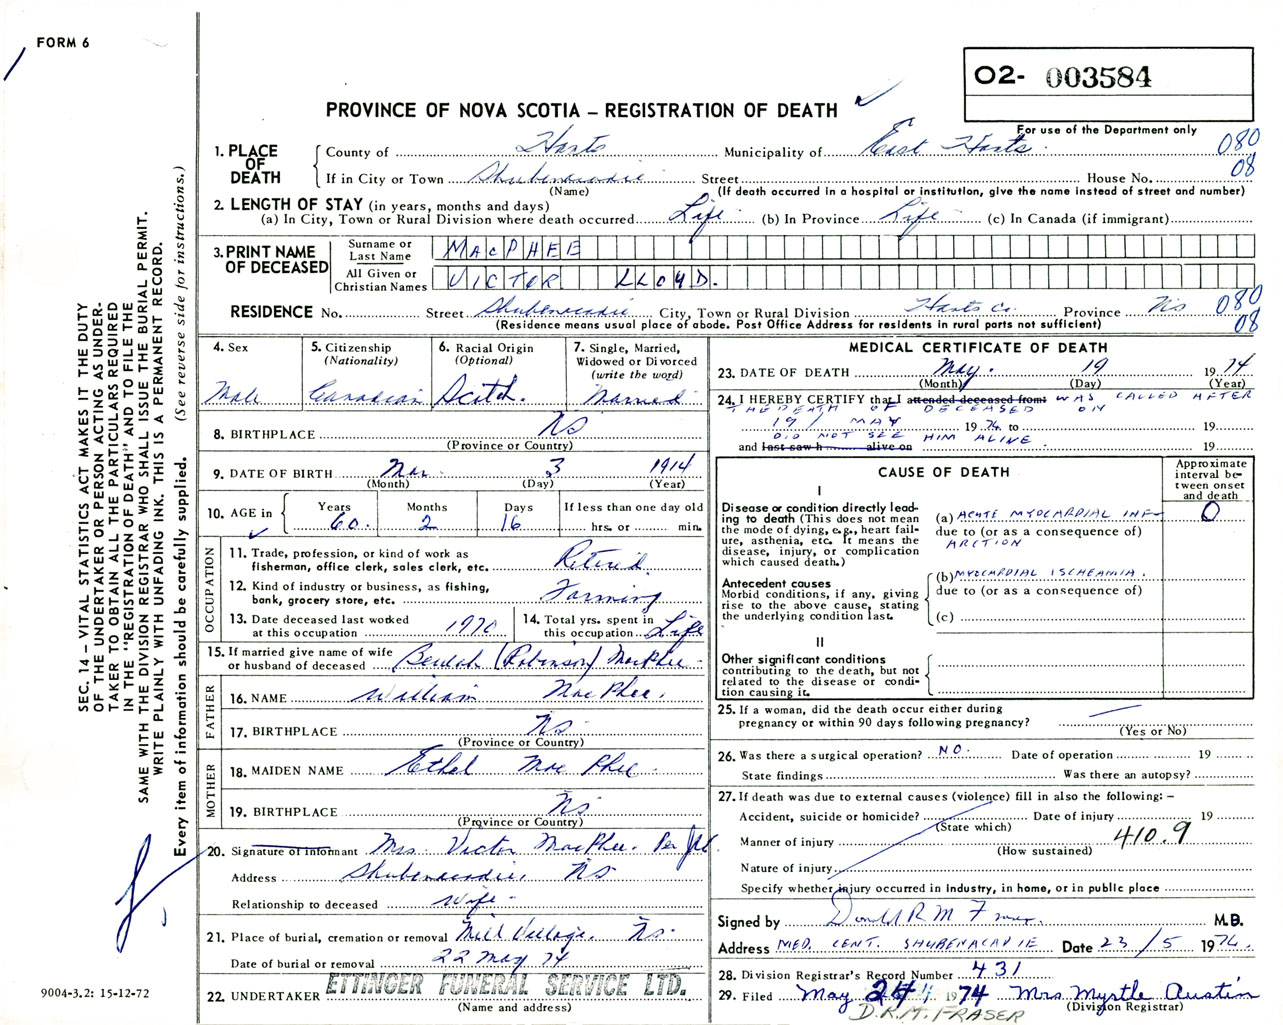 FORM 6
O2- 003584
PROVINCE OF NOVA SCOTIA – REGISTRATION OF DEATH
For use of the Department only
1. PLACE OF DEATH
County of Hants Municipality of East Hants 080
If in City or Town Shubenacadie Street House No. 08
(Name) (If death occurred in a hospital or institution, give the name instead of street and number)
2. LENGTH OF STAY (in years, months and days)
(a) In City, Town or Rural Division where death occurred Life (b) In Province Life (c) In Canada (if immigrant)
3. PRINT NAME OF DECEASED
Surname or Last Name MACPHEE
All Given or Christian Names VICTOR LLOYD.
RESIDENCE No. Street Shubenacadie City, Town or Rural Division Hants Co. Province NS 080
(Residence means usual place of abode. Post Office Address for residents in rural parts not sufficient) 08
4. Sex Male
5. Citizenship (Nationality) Canadian
6. Racial Origin (Optional) Scotch.
7. Single, Married, Widowed or Divorced (write the word) Married
8. BIRTHPLACE NS
(Province or Country)
9. DATE OF BIRTH Mar. 3 1914
(Month) (Day) (Year)
10. AGE in Years 60. Months 2 Days 16 If less than one day old hrs. or min.
OCCUPATION
11. Trade, profession, or kind of work as fisherman, office clerk, sales clerk, etc. Retired.
12. Kind of industry or business, as fishing, bank, grocery store, etc. Farming
13. Date deceased last worked at this occupation 1970
14. Total yrs. spent in this occupation Life
15. If married give name of wife or husband of deceased Beulah (Robinson) MacPhee
FATHER
16. NAME William MacPhee.
17. BIRTHPLACE NS
(Province or Country)
MOTHER
18. MAIDEN NAME Ethel MacPhee
19. BIRTHPLACE NS
(Province or Country)
20. Signature of informant Mrs. Victor MacPhee. Per
Address Shubenacadie, NS
Relationship to deceased wife
21. Place of burial, cremation or removal Mill Village. NS.
Date of burial or removal 22 May 74
22. UNDERTAKER ETTINGER FUNERAL SERVICE LTD.
(Name and address)
MEDICAL CERTIFICATE OF DEATH
23. DATE OF DEATH May. 19 1974
(Month) (Day) (Year)
24. I HEREBY CERTIFY that I attended deceased from: WAS CALLED AFTER
THE DEATH OF DECEASED ON
19/ MAY 1974 to 19
DID NOT SEE HIM ALIVE
and last saw h alive on 19
CAUSE OF DEATH
Approximate interval between onset and death
I
Disease or condition directly leading to death (This does not mean the mode of dying, e.g., heart failure, asthenia, etc. It means the disease, injury, or complication which caused death.)
(a) ACUTE MYOCARDIAL INF- 0
due to (or as a consequence of)
ARCTION
Antecedent causes
Morbid conditions, if any, giving rise to the above cause, stating the underlying condition last.
(b) MYOCARDIAL ISCHEAMIA.
due to (or as a consequence of)
(c)
II
Other significant conditions
contributing to the death, but not related to the disease or condition causing it.
25. If a woman, did the death occur either during pregnancy or within 90 days following pregnancy?
(Yes or No)
26. Was there a surgical operation? NO. Date of operation 19
State findings Was there an autopsy?
27. If death was due to external causes (violence) fill in also the following: –
Accident, suicide or homicide? Date of injury 19
(State which)
Manner of injury 410.9
(How sustained)
Nature of injury
Specify whether injury occurred in Industry, in home, or in public place
Signed by Donald R M Fraser. M.B.
Address MED. CENT. SHUBENACADIE Date 23/5 1974.
28. Division Registrar's Record Number 431
29. Filed May 24 1974 Mrs. Myrtle Austin
(Division Registrar)
D.R.M. FRASER
SEC. 14 – VITAL STATISTICS ACT MAKES IT THE DUTY
OF THE UNDERTAKER OR PERSON ACTING AS UNDER-
TAKER TO OBTAIN ALL THE PARTICULARS REQUIRED
IN THE "REGISTRATION OF DEATH" AND TO FILE THE
SAME WITH THE DIVISION REGISTRAR WHO SHALL ISSUE THE BURIAL PERMIT.
WRITE PLAINLY WITH UNFADING INK. THIS IS A PERMANENT RECORD.
Every item of information should be carefully supplied. (See reverse side for instructions.)
9004-3.2: 15-12-72